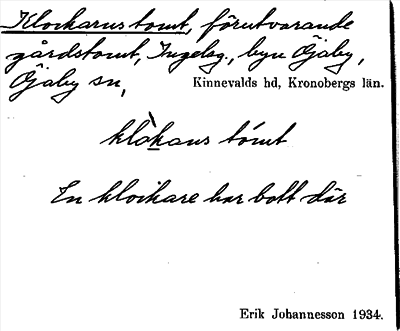 Klockarns tomt, förutvarande
gårdstomt, Ingelsg., byn Öjaby,
Öjaby sn, Kinnevalds hd, Kronobergs län.
klòkans tómt
En klockare har bott där
Erik Johannesson 1934.